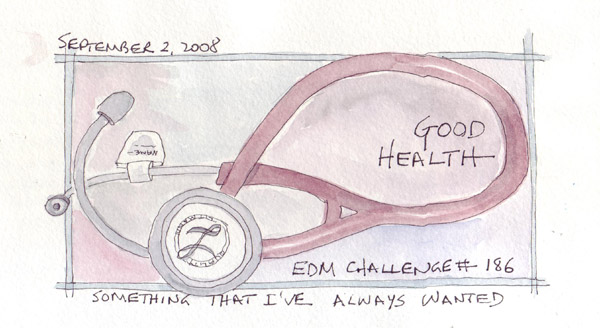 SEPTEMBER 2, 2008
GOOD
HEALTH
NAME
EDM CHALLENGE# 186
SOMETHING THAT I'VE ALWAYS WANTED